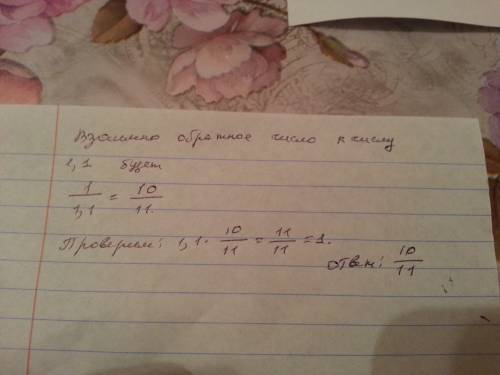 Взаимно обратное число к числу
1,1 будет
1/1,1 = 10/11.
Проверим: 1,1 · 10/11 = 11/11 = 1.
ответ: 10/11